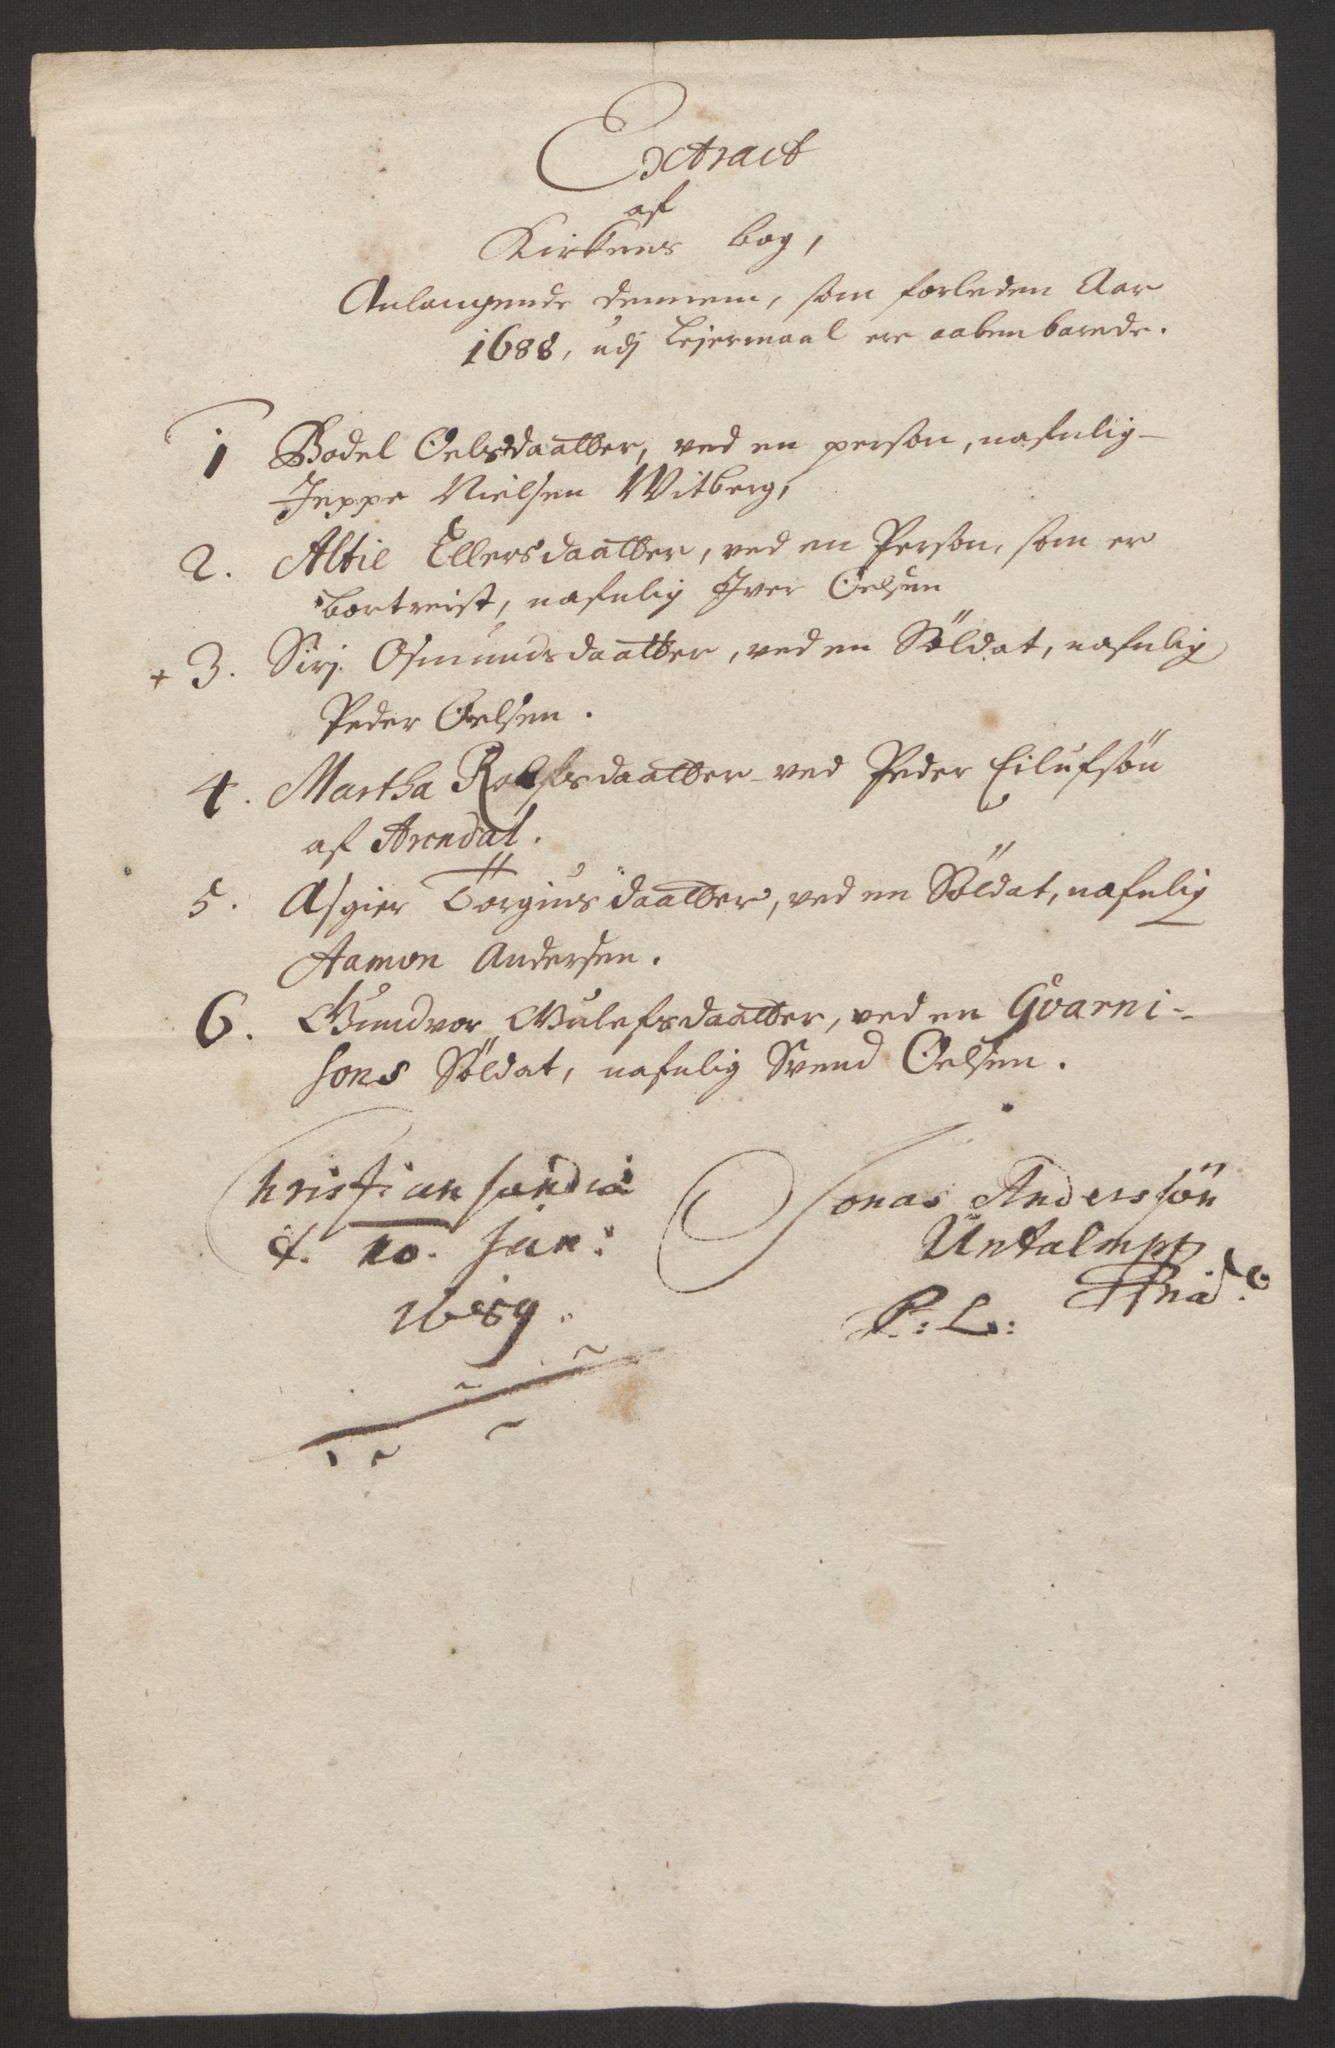 Extract
af
Kirkens bog,
Anlangende dennem, som forleden Aar
1688, udj Lejermaal ere aabenbarede.
1 Bodel Oelsdaatter, ved en person, nafnlig
Jeppe Nielsen Witberg,
2. Altie Ellersdaatter, ved en Person, som er
bortreist, nafnlig Iver Oelsen
+ 3. Sirj Osmundsdaatter, ved en Soldat, nafnlig
Peder Oelsen.
4. Martha Rolfsdaatter ved Peder Eilufsøn
af Arendal.
5. Asgier Torgiusdaatter, ved en Soldat, nafnlig
Aamon Andersen.
6. Gundvor Gulefsdaatter, ved en Gvarni-
sons Søldat, nafnlig Svend Oelsen.
Christiansandiæ
d. 10. Jan:
1689.
Jonas Anderssøn
P: L: